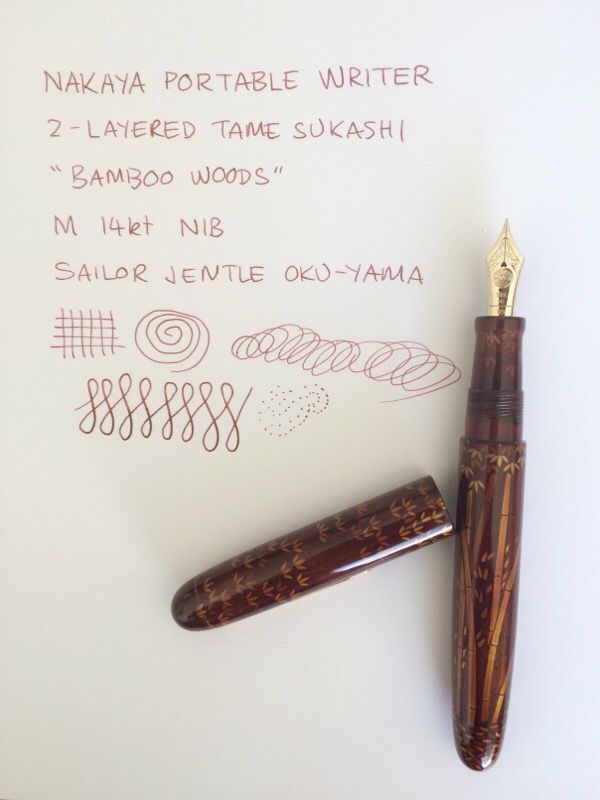 NAKAYA PORTABLE WRITER
2-LAYERED TAME SUKASHI
"BAMBOO WOODS"
M 14kt NIB
SAILOR JENTLE OKU-YAMA